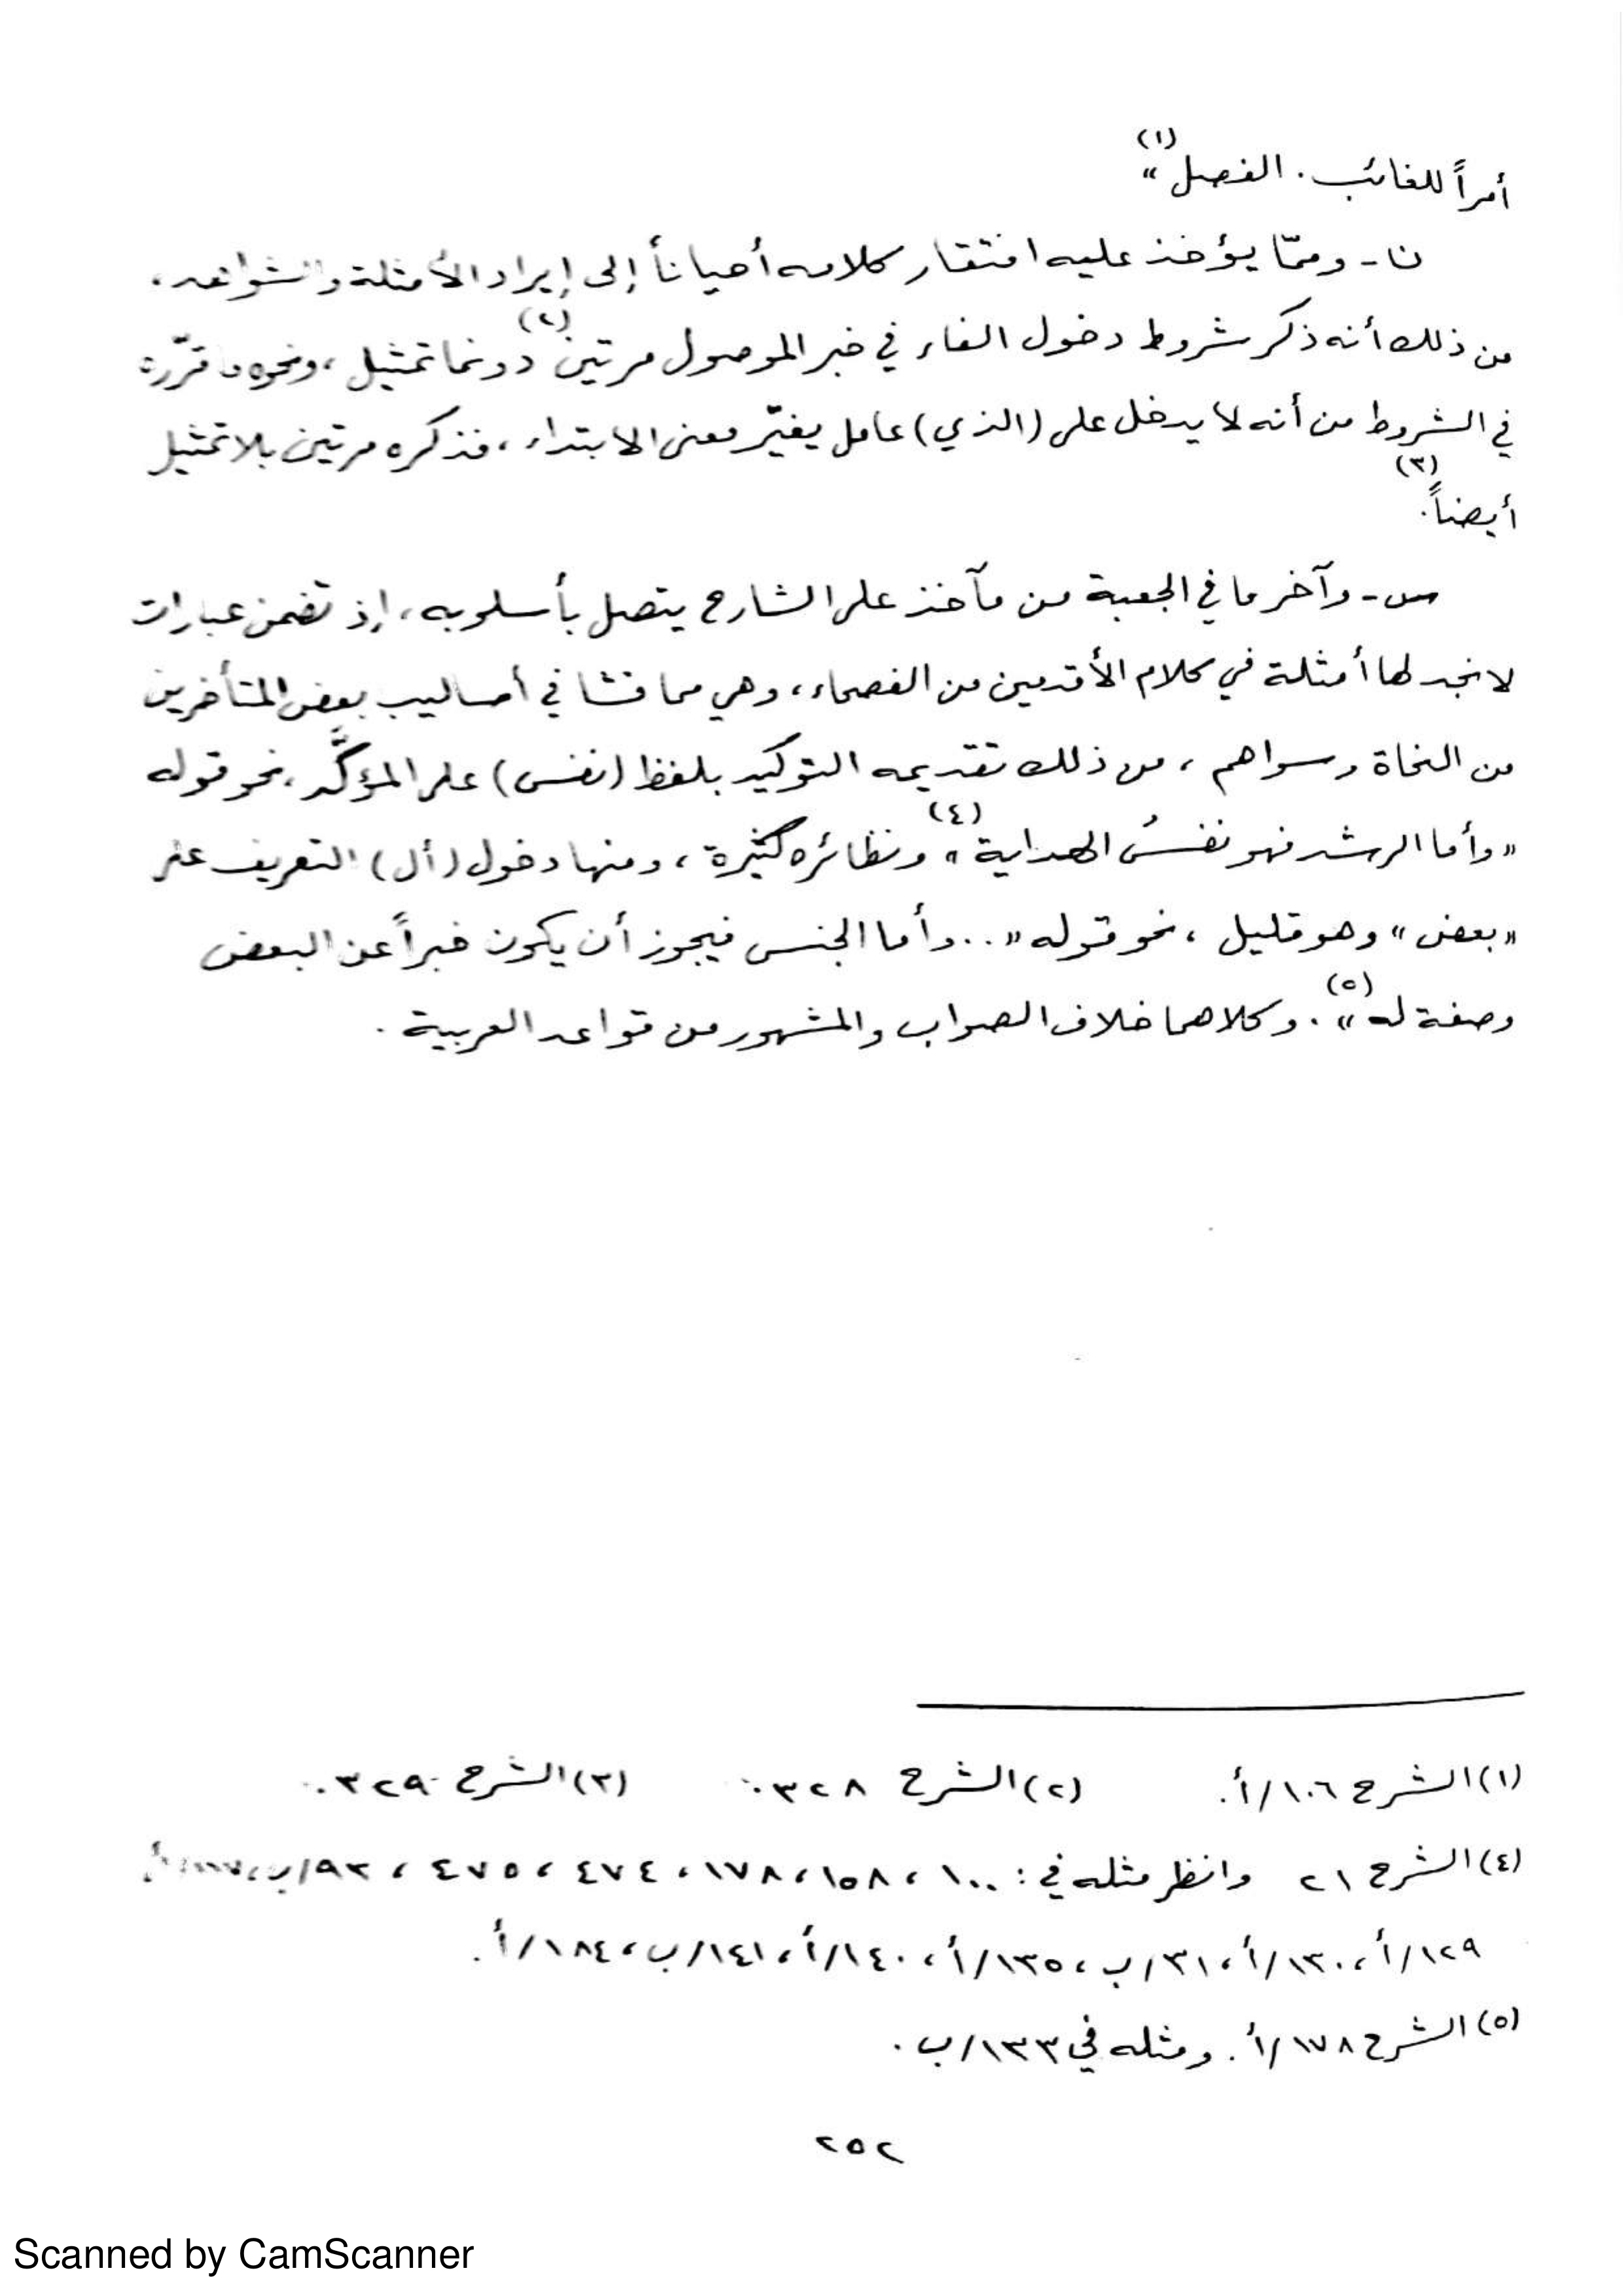 أمراً للغائب. الفصل"(١)
ن - وممّا يؤخذ عليه افتقار كلامه أحياناً إلى إيراد الأمثلة والشواهد،
من ذلك أنه ذكر شروط دخول الفاء في خبر الموصول مرتين(٢) دونما تمثيل، ونحوه ما قرّره
في الشروط من أنه لا يدخل على (الذي) عامل يغيّر معنى الابتداء، فذكره مرتين بلا تمثيل
أيضاً(٣).
س - وآخر ما في الجعبة من مآخذ على الشارح يتصل بأسلوبه، إذ تضمن عبارات
لا نجد لها أمثلة في كلام الأقدمين من الفصحاء، وهي مما فشا في أساليب بعض المتأخرين
من النحاة وسواهم، من ذلك تقديمه التوكيد بلفظ (نفس) على المؤكَّد، نحو قوله
«وأما الرشد فهو نفسُ الهداية»(٤) ونظائره كثيرة، ومنها دخول (أل) التعريف على
«بعض» وهو قليل، نحو قوله «.. وأما الجنس فيجوز أن يكون خبراً عن البعض
وصفة له»(٥). وكلاهما خلاف الصواب والمشهور من قواعد العربية.
(١) الشرح ١٠٦/أ. (٢) الشرح ٣٢٨. (٣) الشرح ٣٢٩.
(٤) الشرح ٢١ وانظر مثله في: ١٠٠، ١٥٨، ١٧٨، ٤٧٤، ٤٧٥، ٩٣/ب،
١٢٩/أ، ١٣٠/أ، ٣١/ب، ١٣٥/أ، ١٤٠/أ، ١٤١/ب، ١٨٤/أ.
(٥) الشرح ١٧٨/أ. ومثله في ١٣٣/ب.
٢٥٢
Scanned by CamScanner